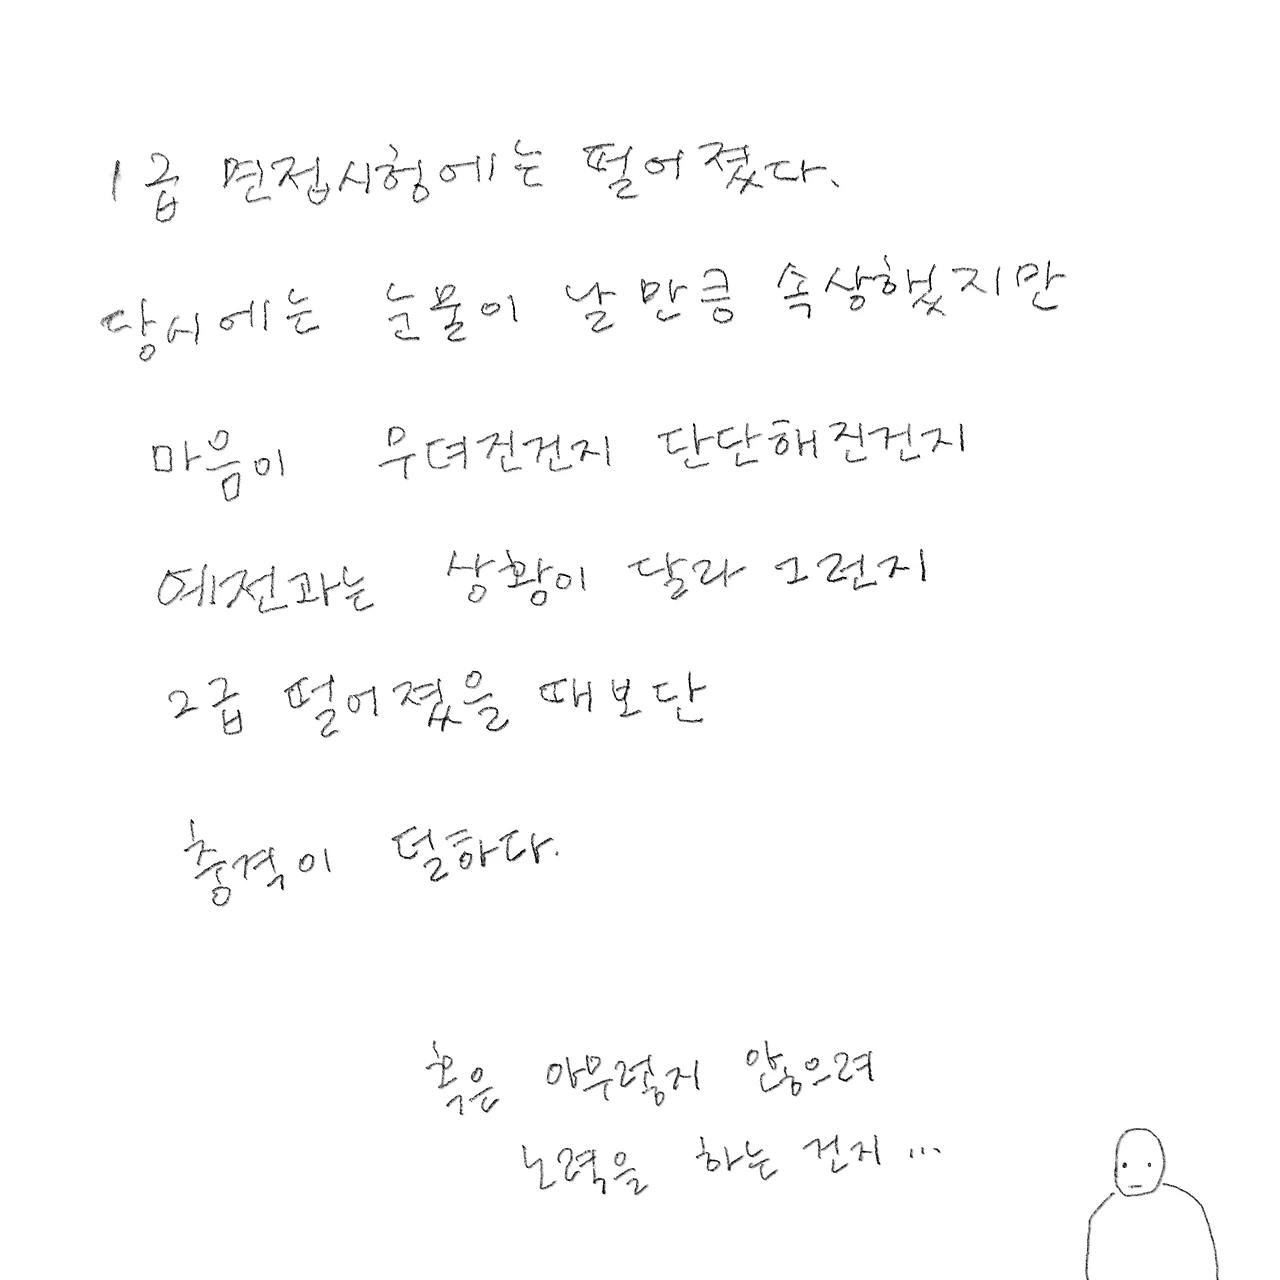 1급 면접시험에는 떨어졌다.
당시에는 눈물이 날 만큼 속상했지만
마음이 무뎌진건지 단단해진건지
예전과는 상황이 달라 그런지
2급 떨어졌을 때보단
충격이 덜하다.
혹은 아무렇지 않으려
노력을 하는 건지...